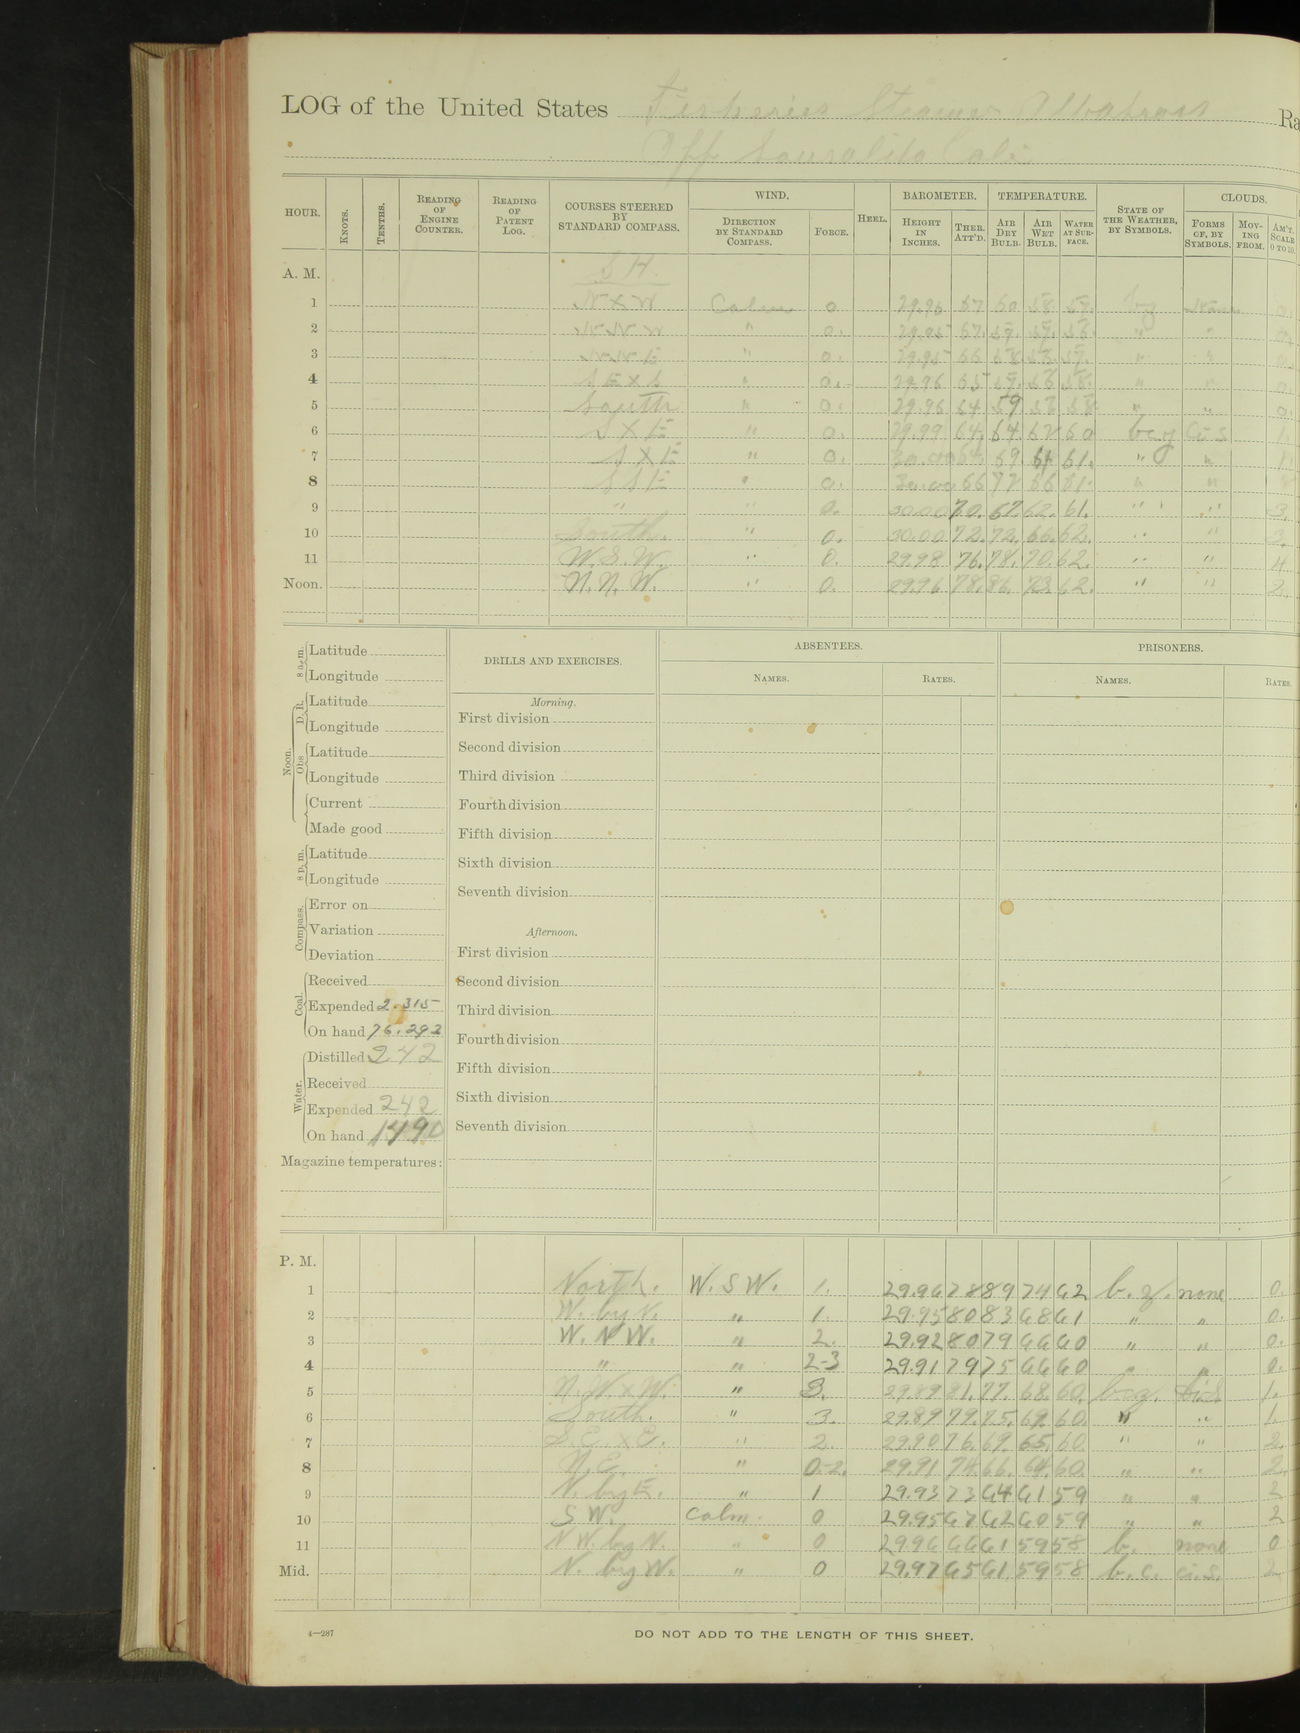 LOG of the United States Fisheries Steamer Albatross Ra
Off Sausalito Cali
HOUR. KNOTS. TENTHS. READING OF ENGINE COUNTER. READING OF PATENT LOG. COURSES STEERED BY STANDARD COMPASS. WIND. DIRECTION BY STANDARD COMPASS. FORCE. HEEL. BAROMETER. HEIGHT IN INCHES. THER. ATT'D. TEMPERATURE. AIR DRY BULB. AIR WET BULB. WATER AT SURFACE. STATE OF THE WEATHER, BY SYMBOLS. CLOUDS. FORMS OF, BY SYMBOLS. MOVING FROM. AM'T. SCALE 0 TO 10.
A. M. S H.
1 N X W Calm 0 29.96 67 60 58 57
2 " 0. 29.95 67. 59. 57. 58. " "
3 " 0. 29.95 66 58 " "
4 S E X S " 0. 29.96 65 59. 58 58. " "
5 South " 0. 29.96 64 59 58 58 " " 0.
6 S X E " 0. 29.99 64. 64. 62 60 bcg Ci S 1.
7 S X E " 0. 30.00 69 64 61. " "
8 S S E " 0. 30.00 66 77 66 61. " "
9 " " 0. 30.00 70. 67. 62. 61. " " 3.
10 South. " 0. 30.00 72. 72. 66. 62. " " 3.
11 W. S. W. " 0. 29.98 76. 78. 70. 62. " " 4
Noon. N. N. W. " 0. 29.96 78. 86. 73. 62. " " 2.
8 a. m. Latitude
Longitude
Noon. D. R. Latitude
Longitude
Obs Latitude
Longitude
Current
Made good
8 p. m. Latitude
Longitude
Compass. Error on
Variation
Deviation
Coal. Received
Expended 2.315
On hand 76.292
Water. Distilled 242
Received
Expended 242
On hand 1490
Magazine temperatures:
DRILLS AND EXERCISES.
Morning.
First division
Second division
Third division
Fourth division
Fifth division
Sixth division
Seventh division
Afternoon.
First division
Second division
Third division
Fourth division
Fifth division
Sixth division
Seventh division
ABSENTEES.
NAMES. RATES.
PRISONERS.
NAMES. RATES.
P. M.
1 North. W. S W. 1. 29.96 78 89 74 62 b. g. none 0.
2 W. by N. " 1. 29.95 80 83 68 61 " " 0.
3 W. N W. " 2. 29.92 80 79 66 60 " " 0.
4 " " 2-3 29.91 79 75 66 60 " " 0.
5 N. W x W. " 3. 29.89 81. 77. 68. 60. bcg. Ci.S. 1.
6 South. " 3. 29.89 79. 75. 67. 60. " " 1.
7 S. E. x E. " 2. 29.90 76. 69. 65. 60. " " 2.
8 N. E. " 0-2. 29.91 74. 66. 64. 60. " " 2.
9 N. by E. " 1 29.93 73 64 61 59 " " 2
10 S W. Calm. 0 29.95 67 62 60 59 " " 2
11 N W. by N. " 0 29.96 66 61 59 58 b. none 0
Mid. N. by W. " 0 29.97 65 61 59 58 b. c. ci. s. 2
4—287
DO NOT ADD TO THE LENGTH OF THIS SHEET.